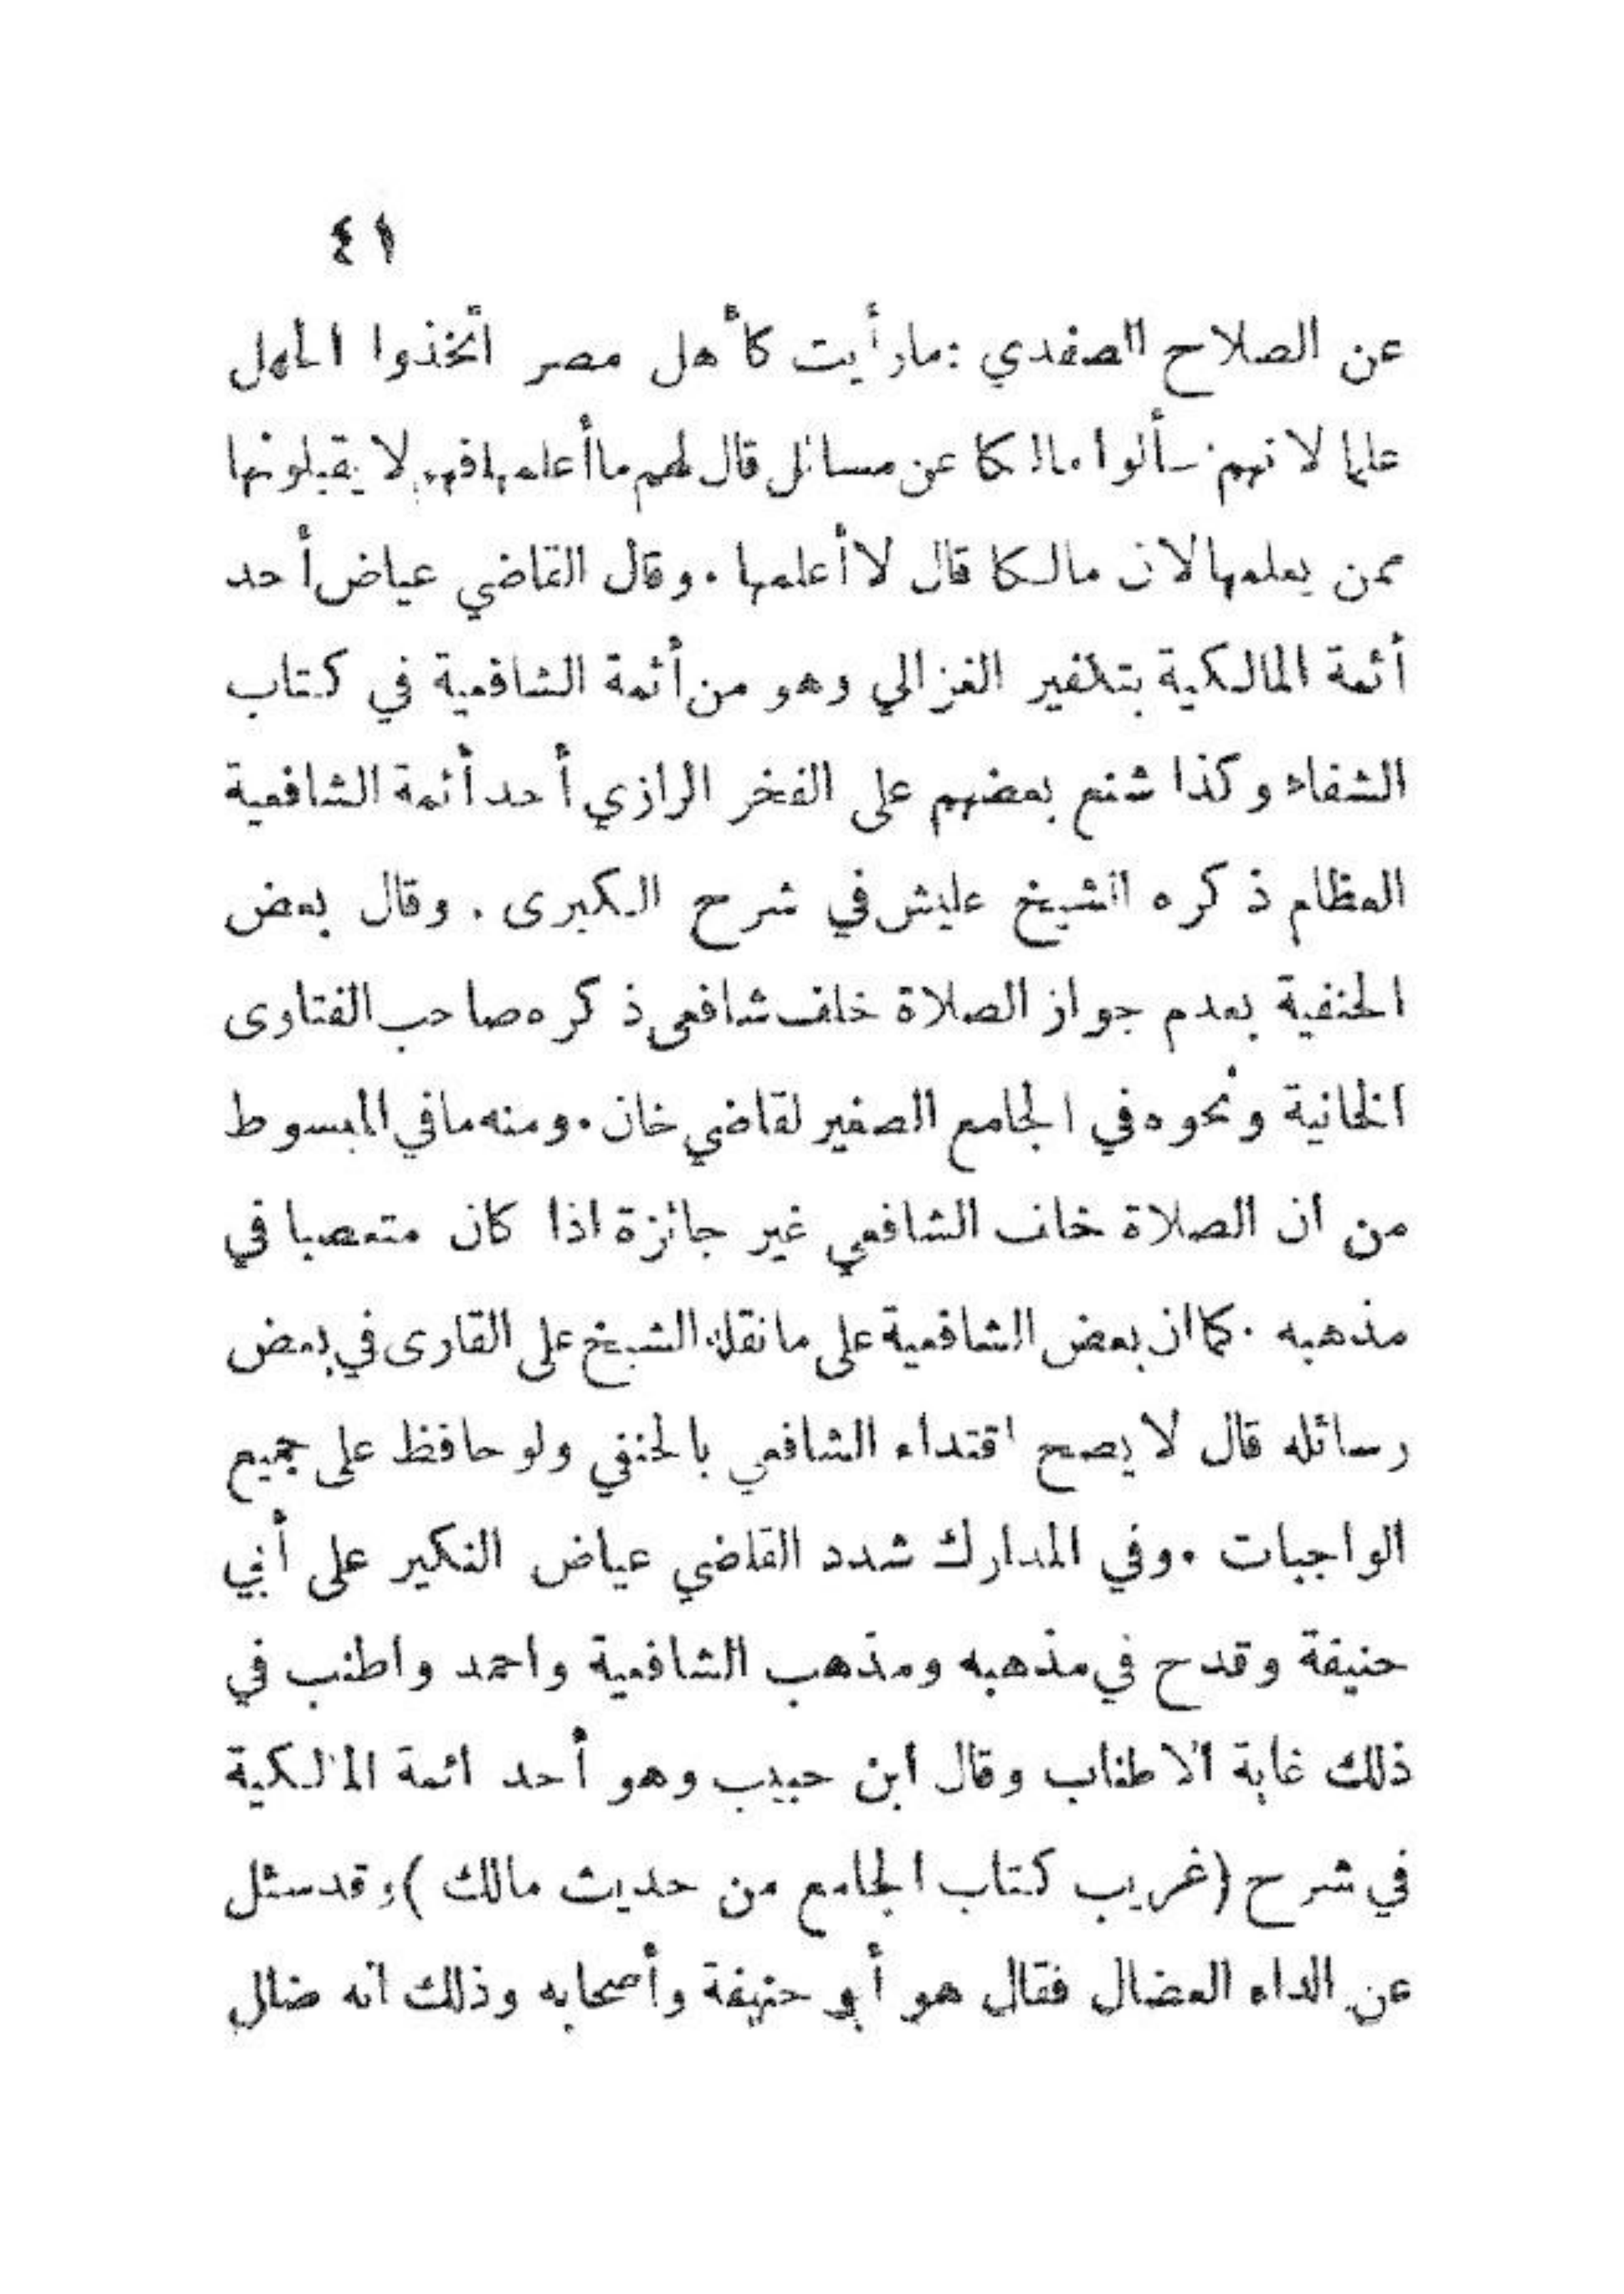 ٤١
عن الصلاح الصفدي : ما رأيت كأهل مصر اتخذوا الجهل
علما لانهم سألوا مالكا عن مسائل قال لهم ما أعلمها فهم لا يقبلونها
ممن يعلمها لان مالكا قال لا أعلمها . وقال القاضي عياض أحد
أئمة المالكية بتكفير الغزالي وهو من أئمة الشافعية في كتاب
الشفاء وكذا شنع بعضهم على الفخر الرازي أحد أئمة الشافعية
العظام ذكره الشيخ عليش في شرح الكبرى . وقال بعض
الحنفية بعدم جواز الصلاة خلف شافعي ذكره صاحب الفتاوى
الخانية ونحوه في الجامع الصغير لقاضي خان . ومنه ما في المبسوط
من ان الصلاة خلف الشافعي غير جائزة اذا كان متعصبا في
مذهبه . كما ان بعض الشافعية على ما نقله الشيخ على القارى في بعض
رسائله قال لا يصح اقتداء الشافعي بالحنفي ولو حافظ على جميع
الواجبات . وفي المدارك شدد القاضي عياض النكير على أبي
حنيفة وقدح في مذهبه ومذهب الشافعية واحمد واطنب في
ذلك غاية الاطناب وقال ابن حبيب وهو أحد ائمة المالكية
في شرح (غريب كتاب الجامع من حديث مالك) وقد سئل
عن الداء العضال فقال هو أبو حنيفة وأصحابه وذلك انه ضال